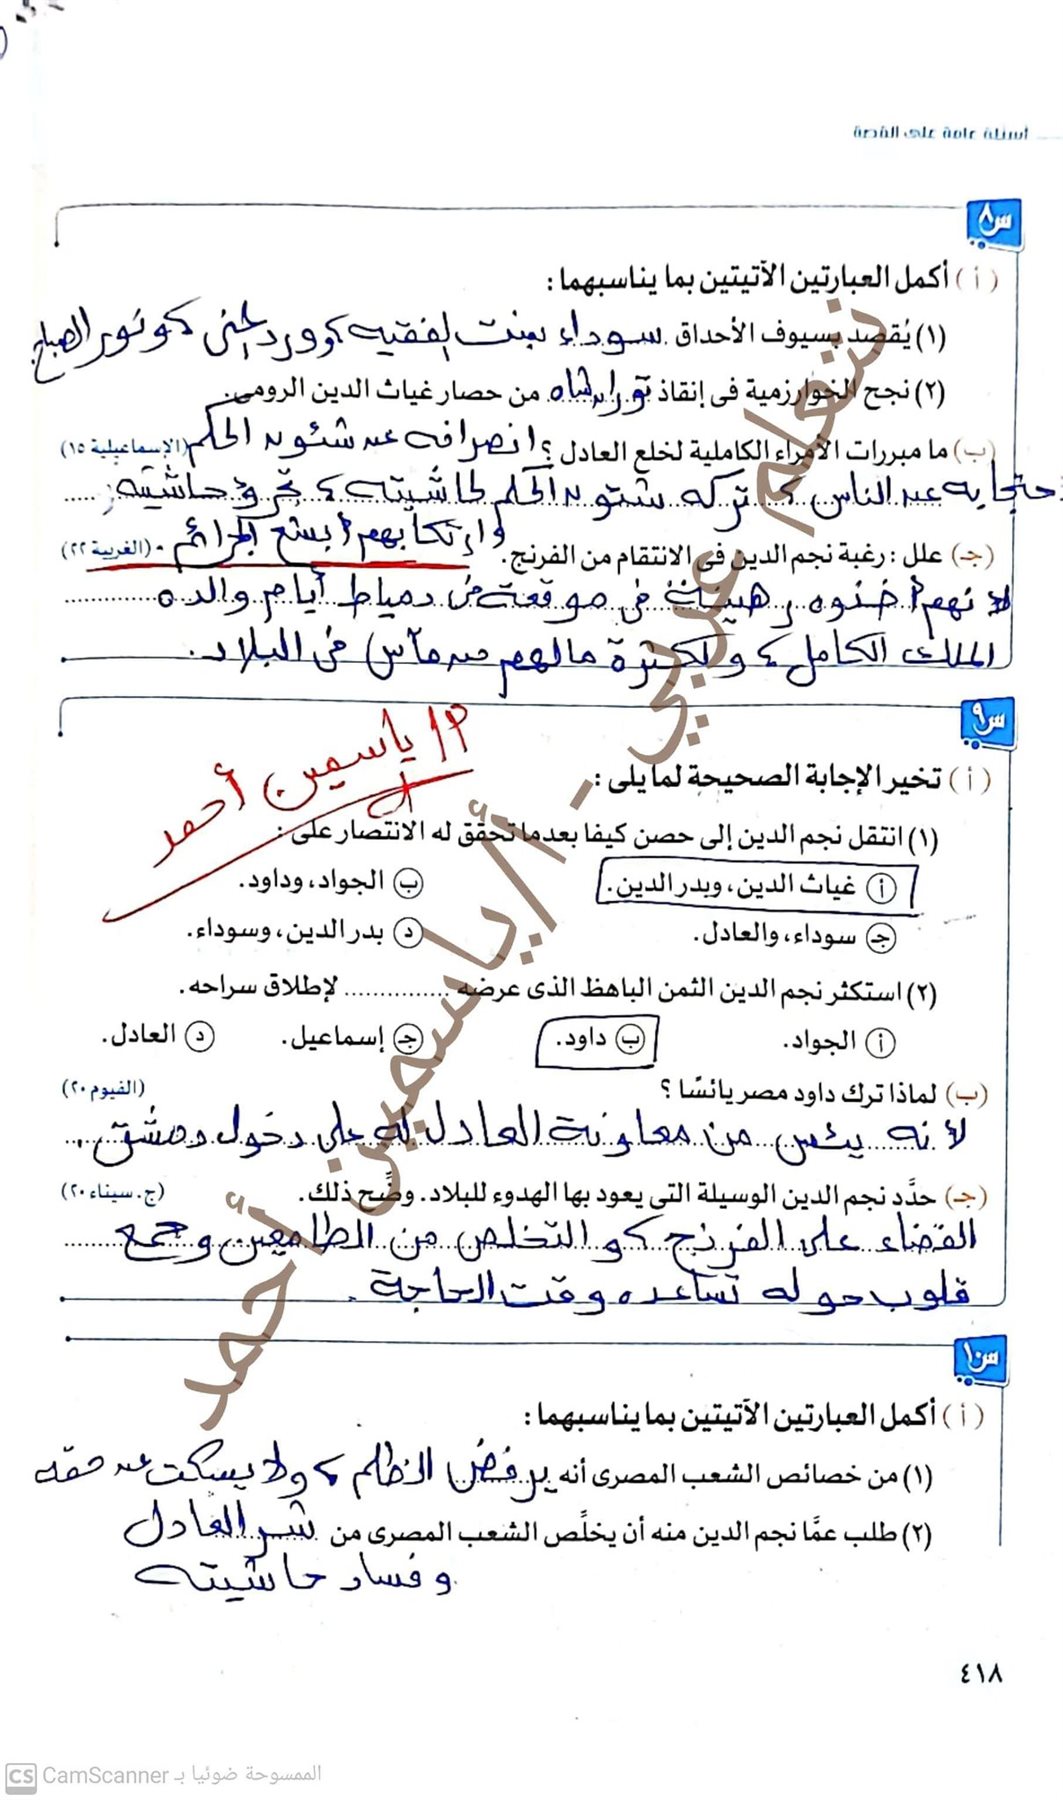 أسئلة عامة على القصة
س٨
(أ) أكمل العبارتين الآتيتين بما يناسبهما:
(١) يُقصد بسيوف الأحداق سوداء بنت الفقيه، وورد المنى، ونور الصباح
(٢) نجح الخوارزمية فى إنقاذ توران شاه من حصار غياث الدين الرومى.
(ب) ما مبررات الأمراء الكاملية لخلع العادل؟ انصرافه عن شئون الحكم (الإسماعيلية ١٥)
احتجابه عن الناس، تركه شئون الحكم لحاشيته، تجرؤ حاشيته
وارتكابهم أبشع الجرائم.
(جـ) علل: رغبة نجم الدين فى الانتقام من الفرنج. (الغربية ٢٢)
لأنهم أخذوه رهينة فى موقعة فى دمياط أيام والده
الملك الكامل، ولكثرة مالهم من مآسٍ فى البلاد.
س٩
أ/ ياسمين أحمد
(أ) تخير الإجابة الصحيحة لما يلى:
(١) انتقل نجم الدين إلى حصن كيفا بعدما تحقق له الانتصار على:
أ غياث الدين، وبدر الدين.
ب الجواد، وداود.
جـ سوداء، والعادل.
د بدر الدين، وسوداء.
(٢) استكثر نجم الدين الثمن الباهظ الذى عرضه ............... لإطلاق سراحه.
أ الجواد.
ب داود.
جـ إسماعيل.
د العادل.
(ب) لماذا ترك داود مصر يائسًا؟ (الفيوم ٢٠)
لأنه يئس من معاونة العادل له على دخول دمشق.
(جـ) حدَّد نجم الدين الوسيلة التى يعود بها الهدوء للبلاد. وضَّح ذلك. (ج. سيناء ٢٠)
القضاء على الفرنج، والتخلص من الطامعين وجمع
قلوب حوله تساعده وقت الحاجة.
س١٠
(أ) أكمل العبارتين الآتيتين بما يناسبهما:
(١) من خصائص الشعب المصرى أنه يرفض الظلم، ولا يسكت عن حقه
(٢) طلب عمَّا نجم الدين منه أن يخلِّص الشعب المصرى من شر العادل
وفساد حاشيته.
٤١٨
نتعلم عربي - أ/ياسمين أحمد
CS CamScanner الممسوحة ضوئيا بـ